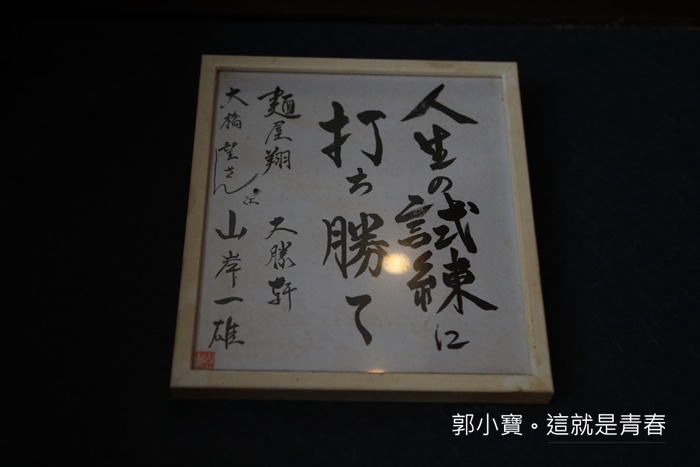 人生の試練に
打ち勝て
麺屋翔 大勝軒
大橋望さん江 山岸一雄
郭小寶。這就是青春